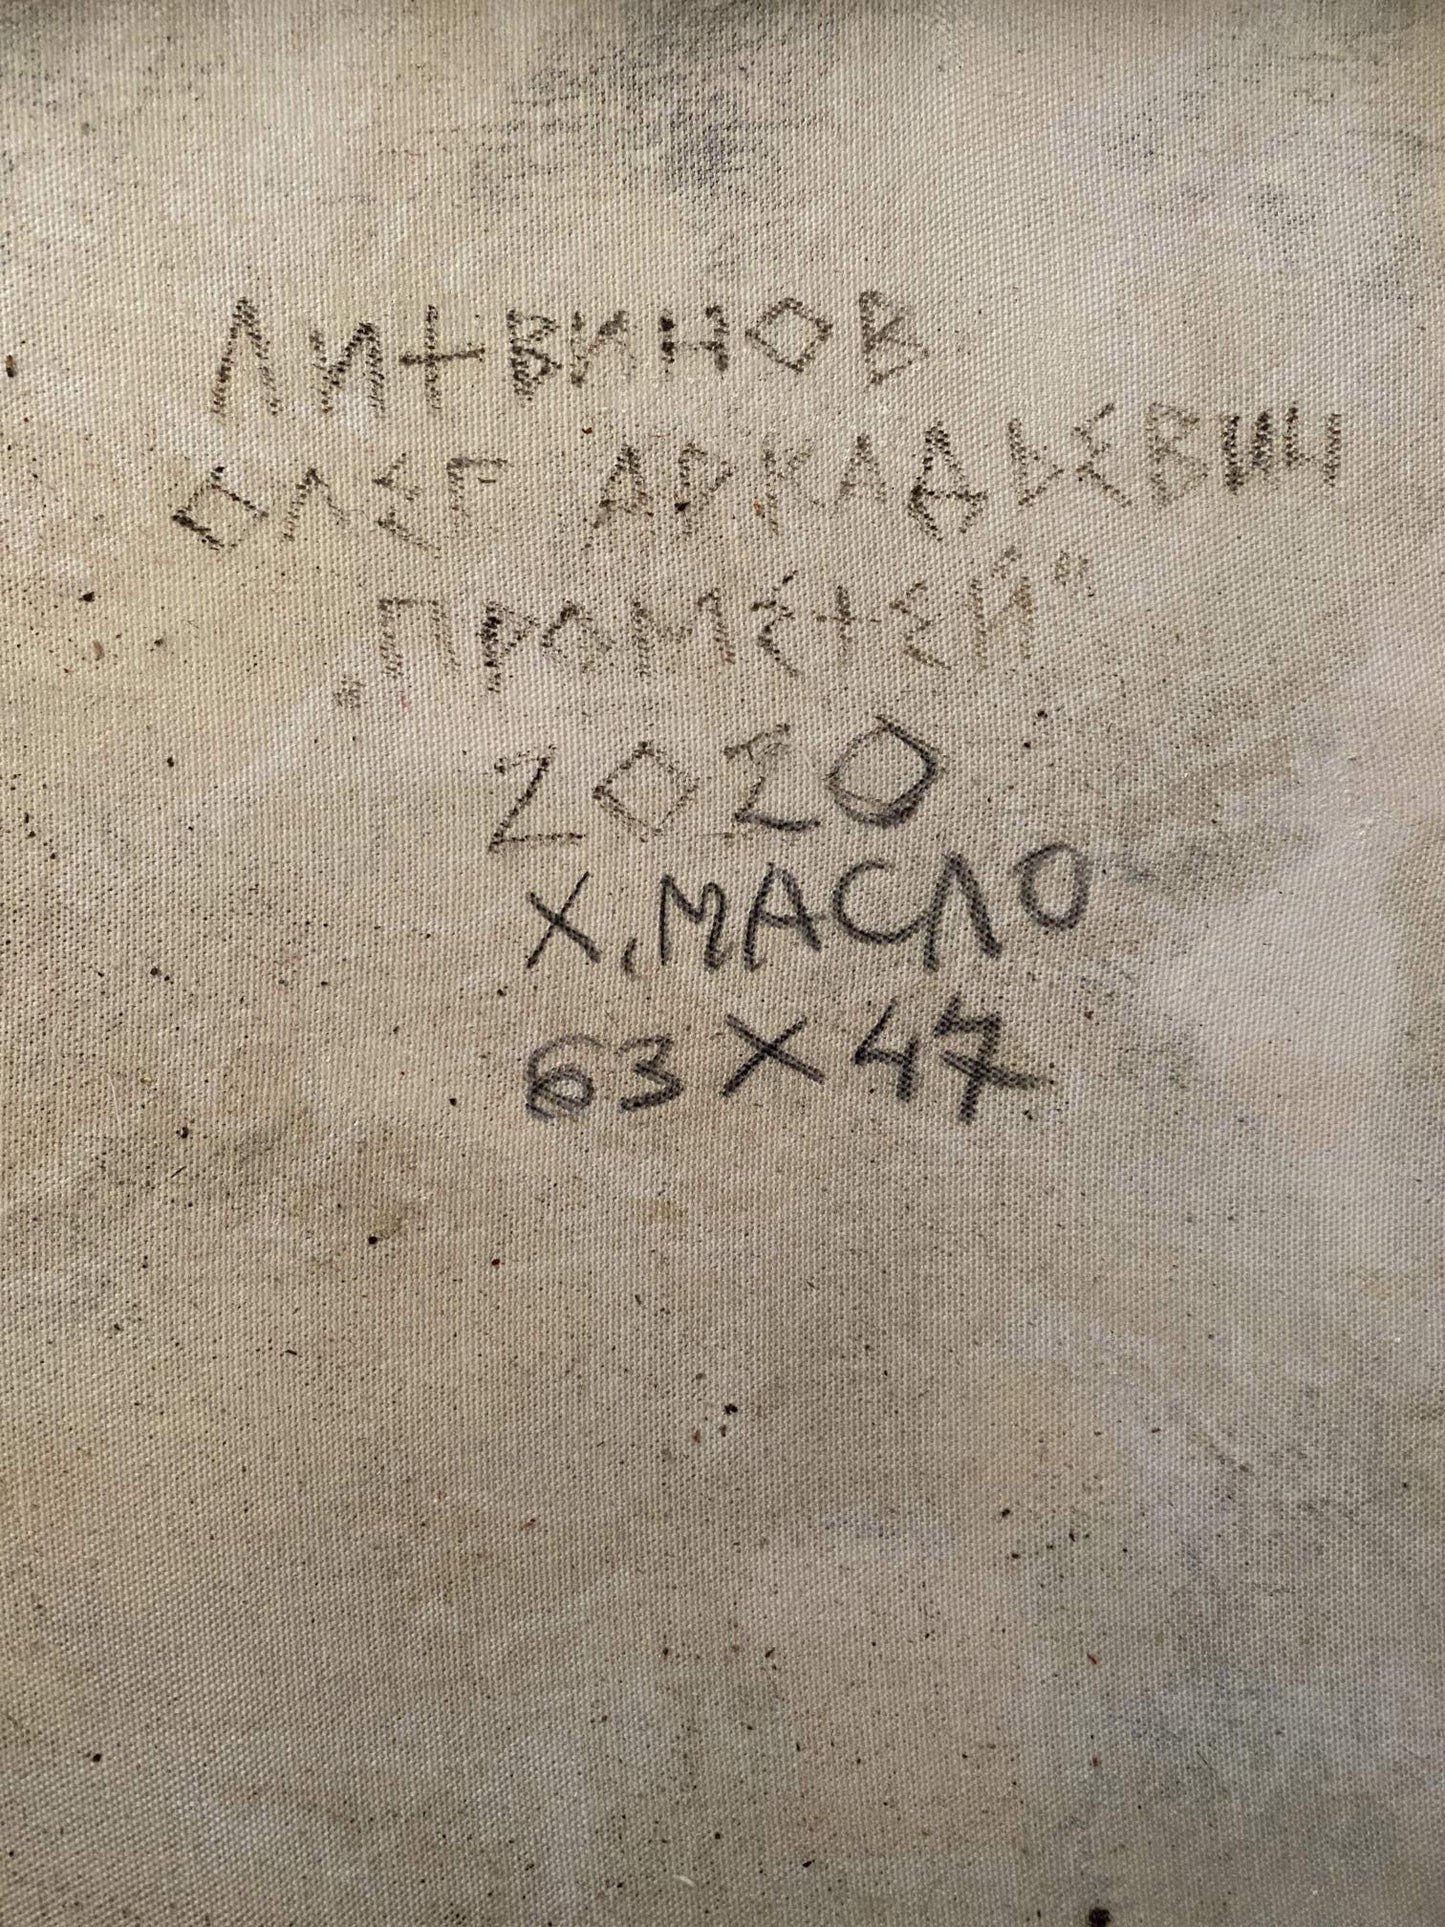 ЛИТВИНОВ
ОЛЕГ АРКАДЬЕВИЧ
„ПРОМЕТЕЙ"
2020
Х, МАСЛО
63 X 47